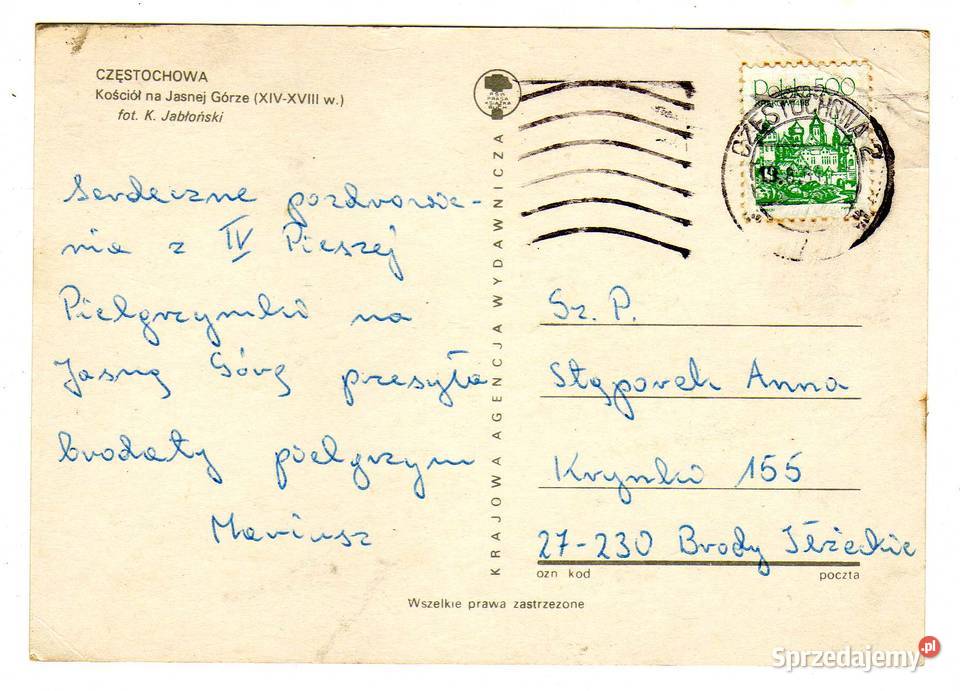 CZĘSTOCHOWA
Kościół na Jasnej Górze (XIV-XVIII w.)
fot. K. Jabłoński
Serdeczne pozdrowie-
nia z IV Pieszej
Pielgrzymki na
Jasną Górę przesyła
brodaty pielgrzym
Mariusz
KRAJOWA AGENCJA WYDAWNICZA
RSW
PRASA
KSIĄŻKA
RUCH
Polska 500
CZĘSTOCHOWA 2
Sz. P.
Stąporek Anna
Krynki 155
27-230 Brody Iłżeckie
ozn kod
poczta
Wszelkie prawa zastrzezone
Sprzedajemy.pl